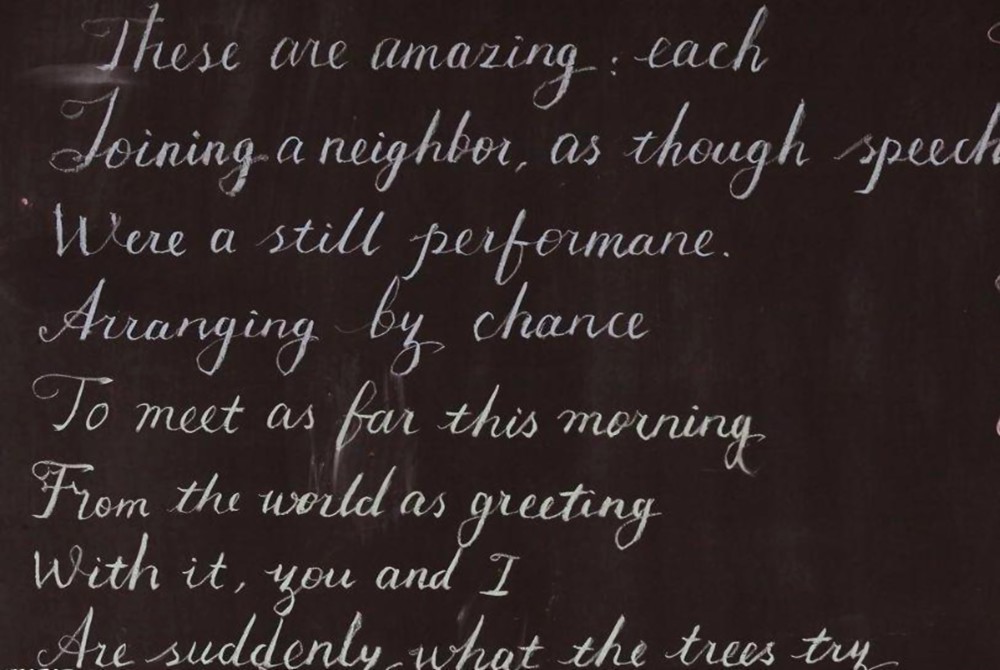 These are amazing: each
Joining a neighbor, as though speech
Were a still performane.
Arranging by chance
To meet as far this morning
From the world as greeting
With it, you and I
Are suddenly what the trees try